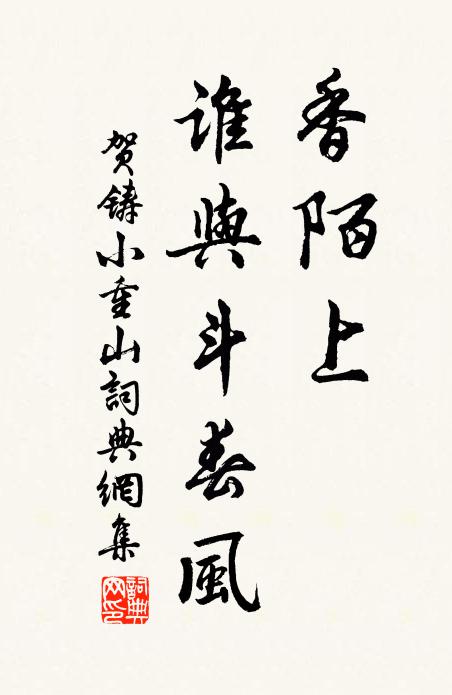 香陌上
誰與斗春風
賀鑄小重山詞典網集
詞典网印